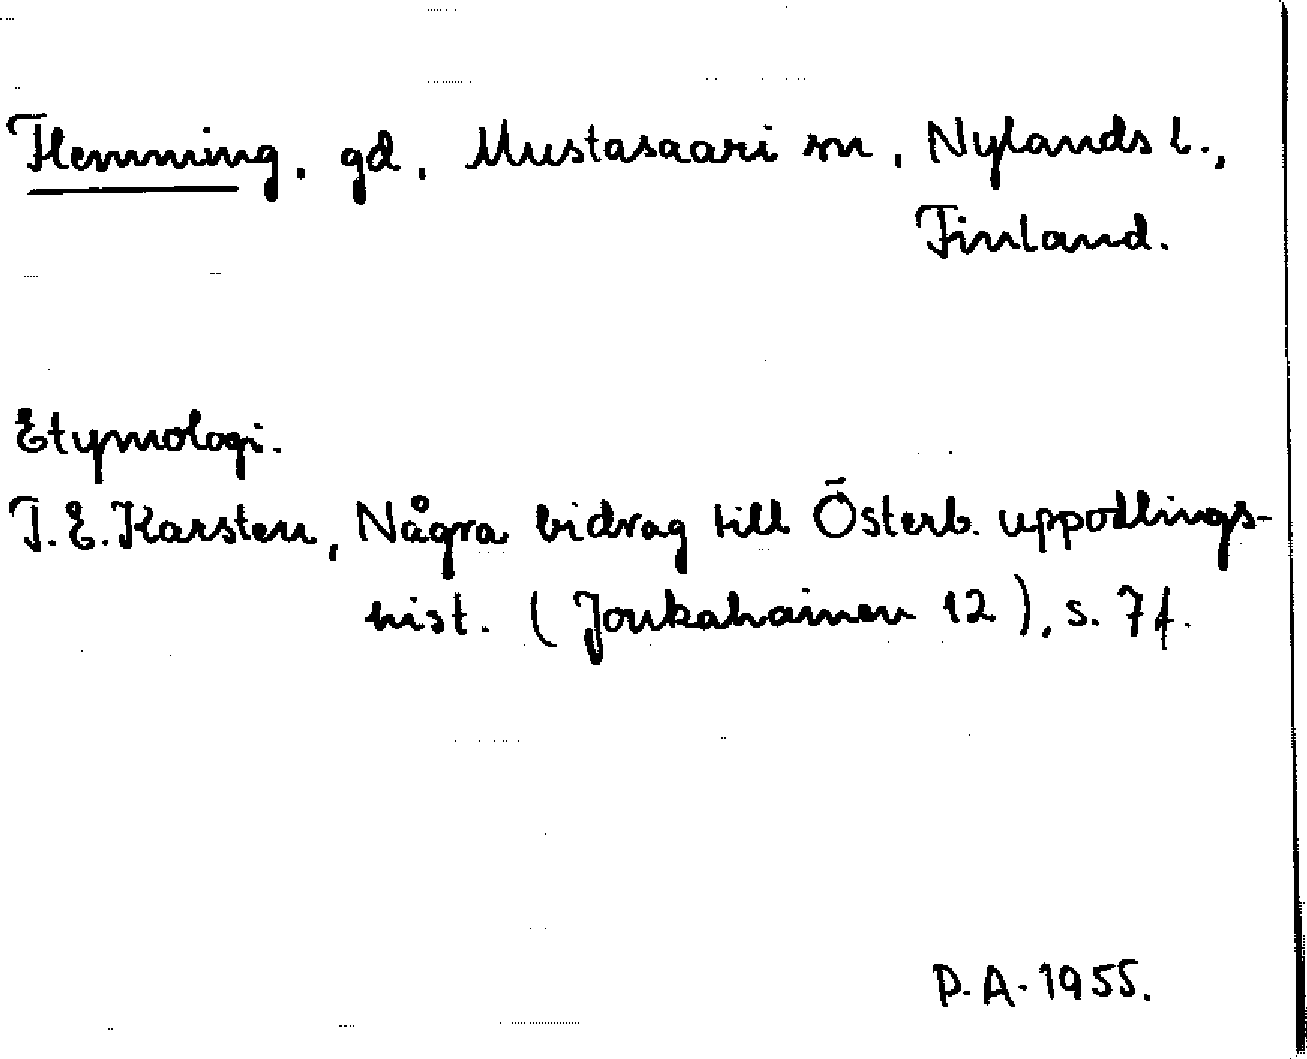 Hemming, gd, Mustasaari sn, Nylands l.,
Finland.
Etymologi.
T.E. Karsten, Några bidrag till Österb. uppodlings-
hist. (Joukahainen 12), s. 7f.
D.A. 1955.